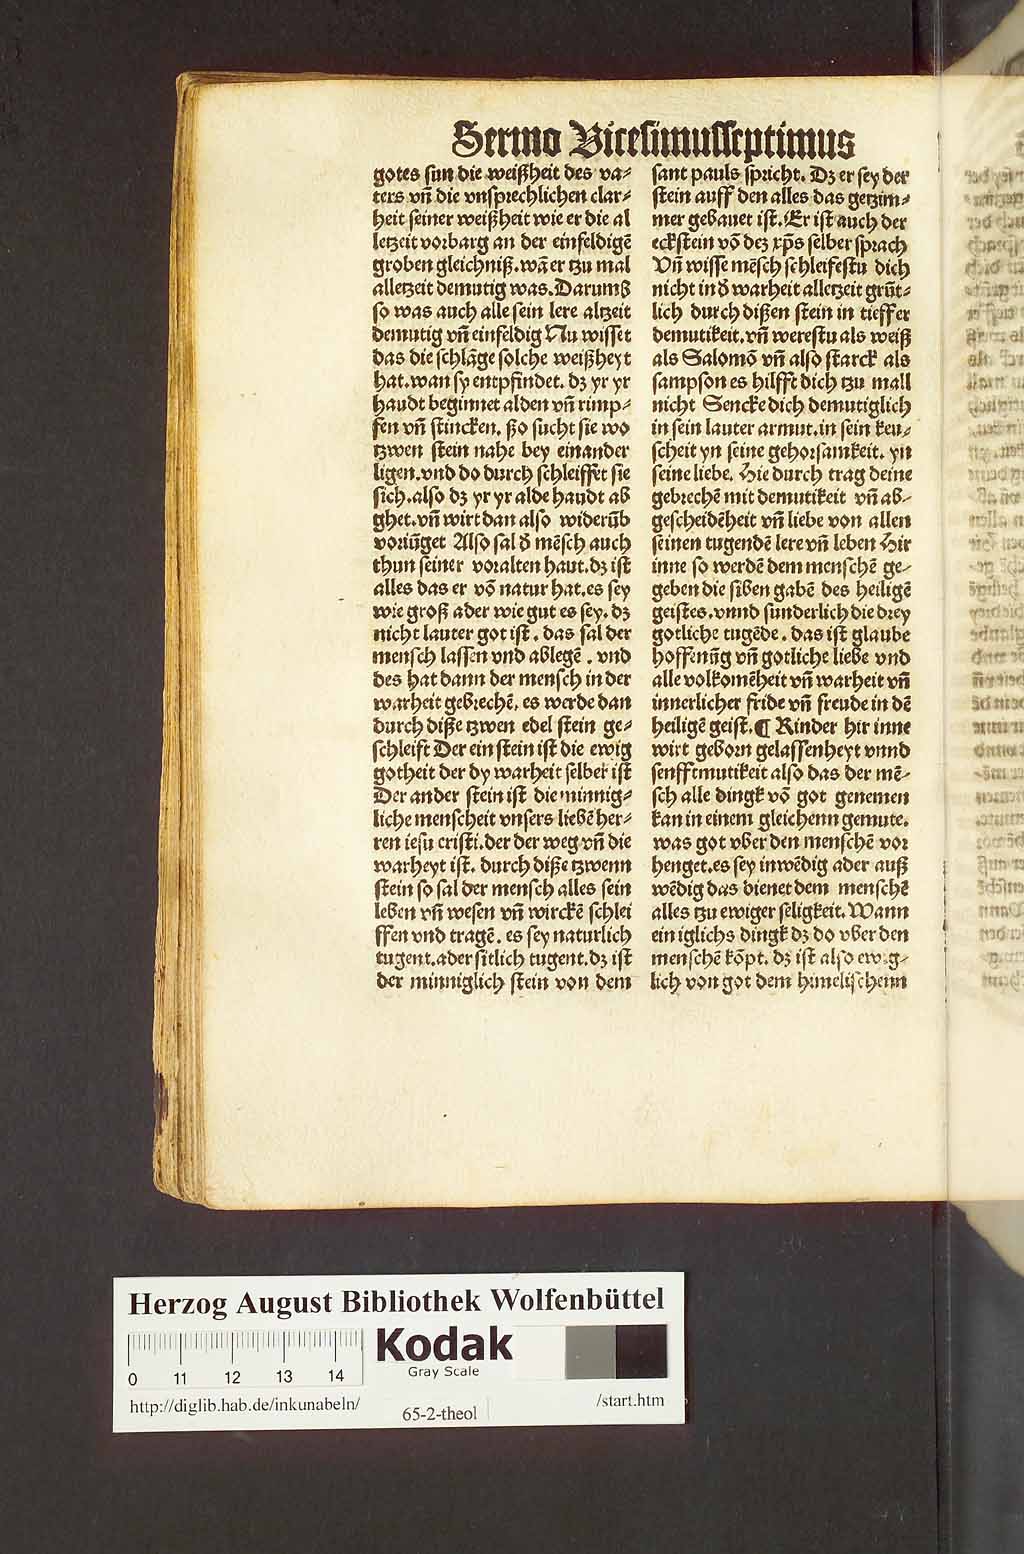 Sermo Vicesimusseptimus
gotes sun die weißheit des va⸗
ters vñ die vnsprechlichen clar⸗
heit seiner weißheit wie er die al
letzeit vorbarg an der einfeldigẽ
groben gleichniß. wañ er tzu mal
alletzeit demutig was. Darumb
so was auch alle sein lere altzeit
demutig vñ einfeldig Nu wisset
das die schlãge solche weißheyt
hat. wan sy entpfindet. dz yr yr
haudt beginnet alden vñ rimp⸗
fen vñ stincken. ßo sucht sie wo
tzwen stein nahe bey einander
ligen. vnd do durch schleiffet sie
sich. also dz yr yr alde haudt ab
ghet. vñ wirt dan also widerũb
voriũget Also sal d̃ mẽsch auch
thun seiner voralten haut. dz ist
alles das er võ natur hat. es sey
wie groß ader wie gut es sey. dz
nicht lauter got ist. das sal der
mensch lassen vnd ablegẽ. vnd
des hat dann der mensch in der
warheit gebrechẽ, es werde dan
durch diße tzwen edel stein ge⸗
schleift Der ein stein ist die ewig
gotheit der dy warheit selber ist
Der ander stein ist die minnig⸗
liche menscheit vnsers liebẽ her⸗
ren iesu cristi. der der weg vñ die
warheyt ist. durch diße tzwenn
stein so sal der mensch alles sein
leben vñ wesen vñ wirckẽ schlei
ffen vnd tragẽ. es sey naturlich
tugent. ader sitlich tugent. dz ist
der minniglich stein von dem
sant pauls spricht. Dz er sey der
stein auff den alles das getzim⸗
mer gebauet ist. Er ist auch der
eckstein võ dez xp̃s selber sprach
Vñ wisse mẽsch schleifestu dich
nicht in d̃ warheit alletzeit grũt⸗
lich durch dißen stein in tieffer
demutikeit. vñ werestu als weiß
als Salomõ vñ also starck als
sampson es hilfft dich tzu mall
nicht Sencke dich demutiglich
in sein lauter armut. in sein keu⸗
scheit yn seine gehorsamkeit. yn
seine liebe. Hie durch trag deine
gebrechẽ mit demutikeit vñ ab⸗
gescheidẽheit vñ liebe von allen
seinen tugendẽ lere vñ leben Hir
inne so werdẽ dem menschẽ ge⸗
geben die siben gabẽ des heiligẽ
geistes. vnnd sunderlich die drey
gotliche tugẽde. das ist glaube
hoffenũg vñ gotliche liebe vnd
alle volkomẽheit vñ warheit vñ
innerlicher fride vñ freude in dẽ
heiligẽ geist. ¶ Kinder hir inne
wirt geborn gelassenheyt vnnd
senfftmutikeit also das der mẽ⸗
sch alle dingk võ got genemen
kan in einem gleichenn gemute.
was got vber den menschẽ vor
henget. es sey inwẽdig ader auß
wẽdig das dienet dem menschẽ
alles tzu ewiger seligkeit. Wann
ein iglichs dingk dz do vber den
menschẽ kõpt. dz ist also ewig⸗
lich von got dem himelischenn
Herzog August Bibliothek Wolfenbüttel
Kodak
Gray Scale
0 11 12 13 14
http://diglib.hab.de/inkunabeln/
65-2-theol
/start.htm